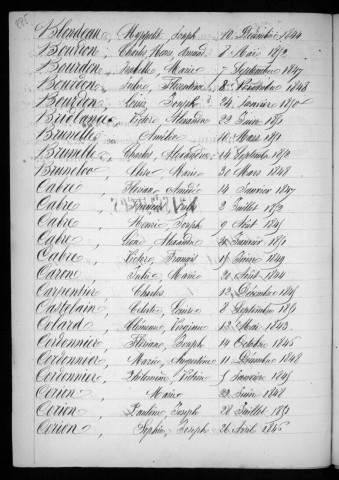 Blondeau, Joseph 10 Décembre 1844
Bourdon, Charles Henri 1 Mai 1852
Bourdon, Marie 7 Septembre 1847
Bourdon, Jules Florentin 8 1848
Bourdon, Louis Joseph 24 Janvier 1850
Victor Alexandre 22 Juin 1851
Brunelle, Amélie 10 Mars 1851
Brunelle, Charles Alexandre 14 Septembre 1852
Marie 30 Mars 1848
Cabre, Florian André 14 Janvier 1847
Cabre, Joseph 2 Juillet 1852
Cabre, Henri Joseph 9 Août 1845
Cabre, Léon Alexandre Janvier 1851
Cabre, Victor François 15 Juin 1849
Caron, Julie Marie 20 Août 1844
Carpentier, Charles 12 Décembre 1845
Castelain, Celeste Louise 8 Septembre 1851
Colard, Virginie 13 Mai 1843
Cordonnier, Floriane Joseph 14 Octobre 1846
Cordonnier, Marie Augustine 11 Décembre 1848
Cordonnier, Philomène 5 Janvier 1845
Corion, Marie 22 Juin 1848
Corion, Pauline Joseph 28 Juillet 1851
Corion, Sophie Joseph 26 Avril 1846